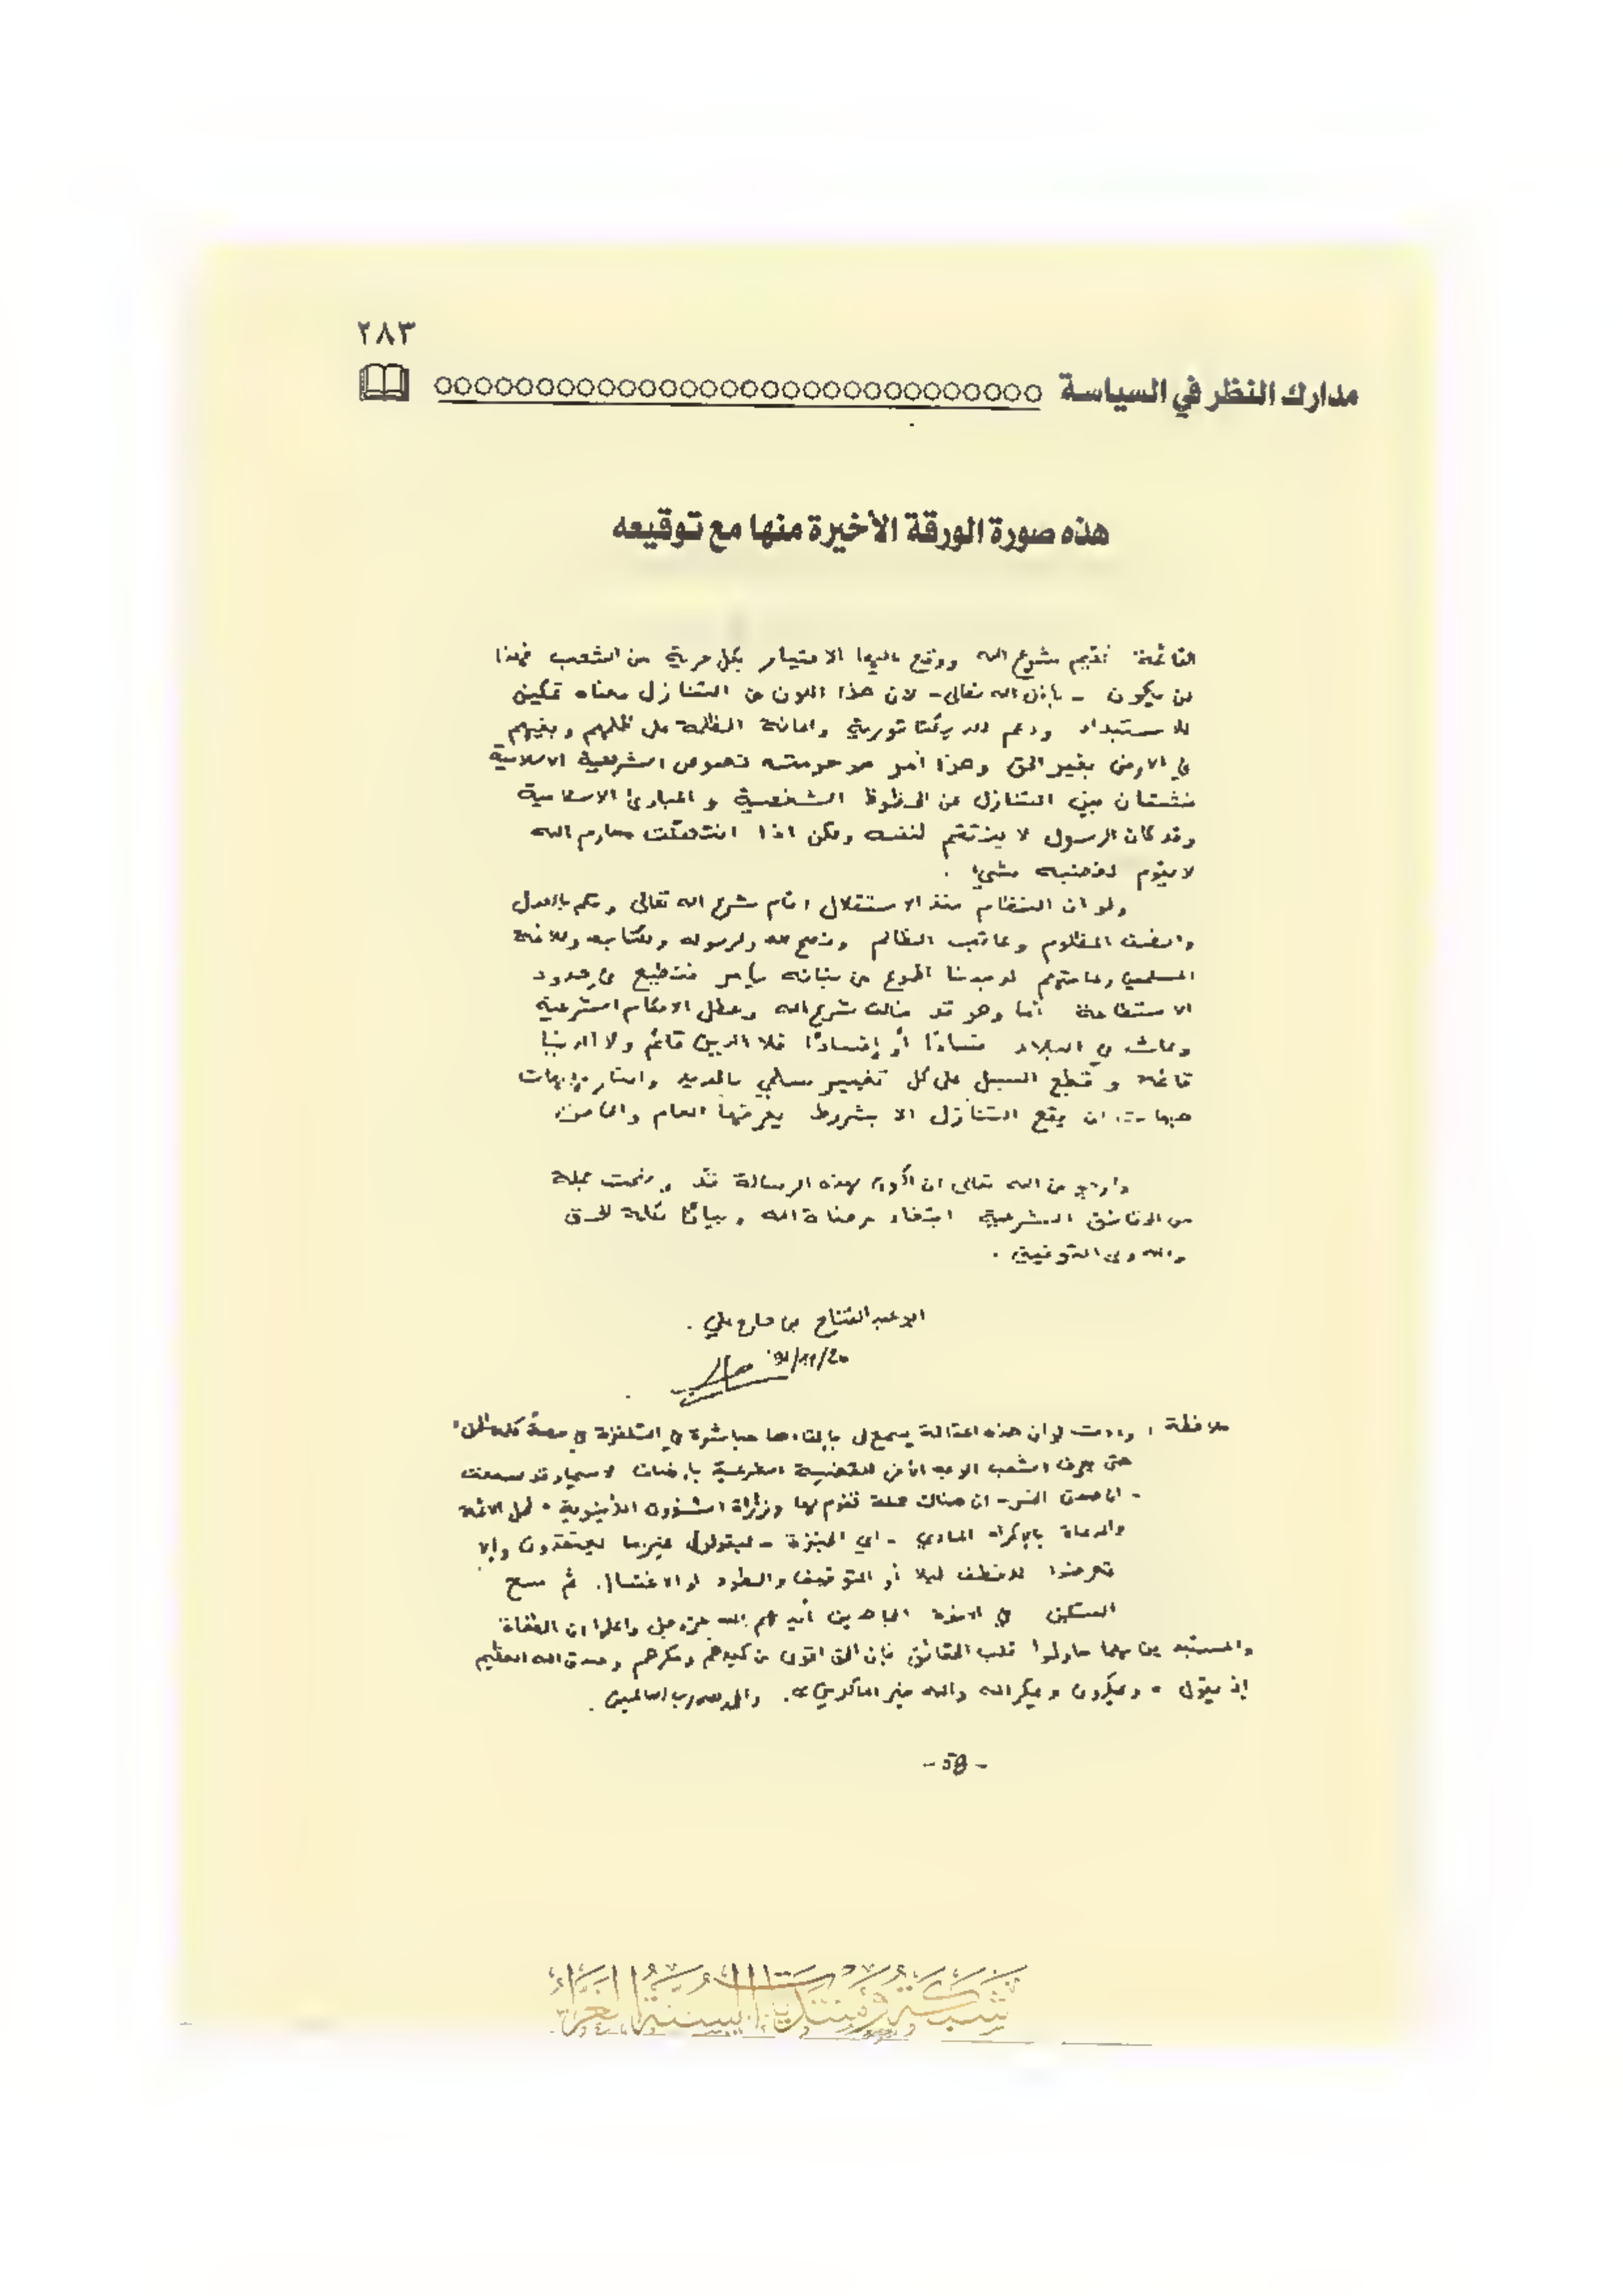 ٢٨٣
مدارك النظر في السياسة
هذه صورة الورقة الأخيرة منها مع توقيعه
شرع الله ووقع عليها الاختيار بكل حرية من الشعب فهذا
لن يكون - بإذن الله تعالى - لان هذا اللون من التنازل معناه تمكين
للاستبداد ودعم للديكتاتورية واعانة الظلمة على ظلمهم وبغيهم
في الارض بغير الحق وهذا أمر نصوص الشرعية الاسلامية
فشتان بين التنازل عن الحظوظ الشخصية و المبادئ الاسلامية
وقد كان الرسول لا ينتقم لنفسه ولكن اذا انتهكت محارم الله
لا يقوم لغضبه شيء .
ولو ان النظام منذ الاستقلال اقام شرع الله تعالى وحكم بالعدل
وانصف المظلوم وعاقب الظالم ونصح لله ولرسوله ولكتابه وللائمة
المسلمين وعامتهم لوجدنا اطوع من بنانه يأمر فنطيع في حدود
الاستطاعة أما وهو قد خالف شرع الله وعطل الاحكام الشرعية
وعاث في البلاد فسادًا أو إفسادًا فلا الدين قائم ولا الدنيا
قائمة و قطع السبيل على كل تغيير سلمي بالحديد والنار
ان يقع التنازل الا بشروط يعرفها العام والخاص
وارجو من الله تعالى ان أكون بهذه الرسالة قد وضحت جملة
من الحقائق الشرعية ابتغاء مرضاة الله وبيانًا لكلمة الحق
والله ولي التوفيق .
عبد الفتاح علي بن حاج .
ملاحظة : وددت لو ان هذه المقالة يسمح لي بإلقاءها مباشرة في التلفزة في حصة
حتى يعرف الشعب للقضية الشرعية لاسيما وقد سمعت
- ان صدق الخبر - ان هناك حملة تقوم بها وزارة الشؤون الدينية لحمل الائمة
والدعاة بالإكراه المادي - اي الخبزة - ليقولوا غير ما يعتقدون وإلا
تعرضوا للخطف ليلا أو التوقيف والطرد او الاغتيال. ثم مسح
السكين في الاخوة المجاهدين أيدهم الله عز وجل واعلموا ان الطغاة
والمستبدين مهما حاولوا قلب الحقائق فإن الحق اقوى من كيدهم ومكرهم وصدق الله العظيم
إذ يقول « ويمكرون ويمكر الله والله خير الماكرين ». والحمد لله رب العالمين .
- 58 -